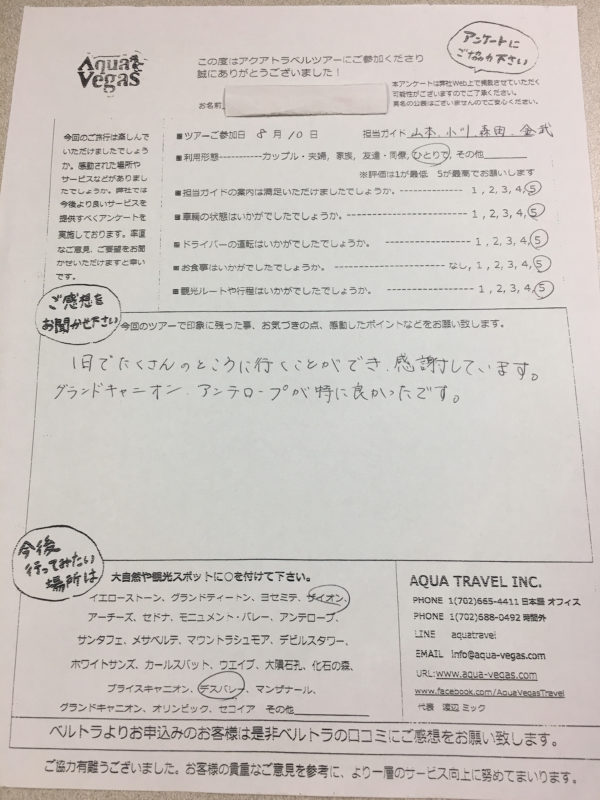 Aqua
Vegas
この度はアクアトラベルツアーにご参加くださり
誠にありがとうございました！
アンケートに
ご協力下さい
本アンケートは弊社Web上で掲載させていただく
可能性がございますのでご了承ください。
実名の公表はございませんのでご安心ください。
お名前
今回のご旅行は楽しんで
いただけましたでしょう
か。感動された場所や
サービスなどがありまし
たでしょうか。弊社では
今後より良いサービスを
提供すべくアンケートを
実施しております。率直
なご意見、ご要望をお聞
かせいただけますと幸い
です。
■ツアーご参加日 8月10日 担当ガイド 山本、小川、森田、金武
■利用形態-----------カップル・夫婦, 家族, 友達・同僚, ひとりで, その他
※評価は1が最低 5が最高でお願いします
■担当ガイドの案内は満足いただけましたでしょうか。 1, 2, 3, 4, 5
■車輌の状態はいかがでしたでしょうか。 1, 2, 3, 4, 5
■ドライバーの運転はいかがでしたでしょうか。 1, 2, 3, 4, 5
■お食事はいかがでしたでしょうか。 なし, 1, 2, 3, 4, 5
■観光ルートや行程はいかがでしたでしょうか。 1, 2, 3, 4, 5
ご感想を
お聞かせ下さい
今回のツアーで印象に残った事、お気づきの点、感動したポイントなどをお願い致します。
1日でたくさんのところに行くことができ、感謝しています。
グランドキャニオン、アンテロープが特に良かったです。
今後
行ってみたい
場所は
大自然や観光スポットに○を付けて下さい。
イエローストーン、グランドティートン、ヨセミテ、ザイオン、
アーチーズ、セドナ、モニュメント・バレー、アンテロープ、
サンタフェ、メサベルテ、マウントラシュモア、デビルスタワー、
ホワイトサンズ、カールスバット、ウエイブ、大隕石孔、化石の森、
ブライスキャニオン、デスバレー、マンザナール、
グランドキャニオン、オリンピック、セコイア その他
AQUA TRAVEL INC.
PHONE 1(702)665-4411 日本語 オフィス
PHONE 1(702)688-0492 時間外
LINE aquatravel
EMAIL info@aqua-vegas.com
URL:www.aqua-vegas.com
www.facebook.com/AquaVegasTravel
代表 渡辺 ミック
ベルトラよりお申込みのお客様は是非ベルトラの口コミにご感想をお願い致します。
ご協力有難うございました。お客様の貴重なご意見を参考に、より一層のサービス向上に努めてまいります。